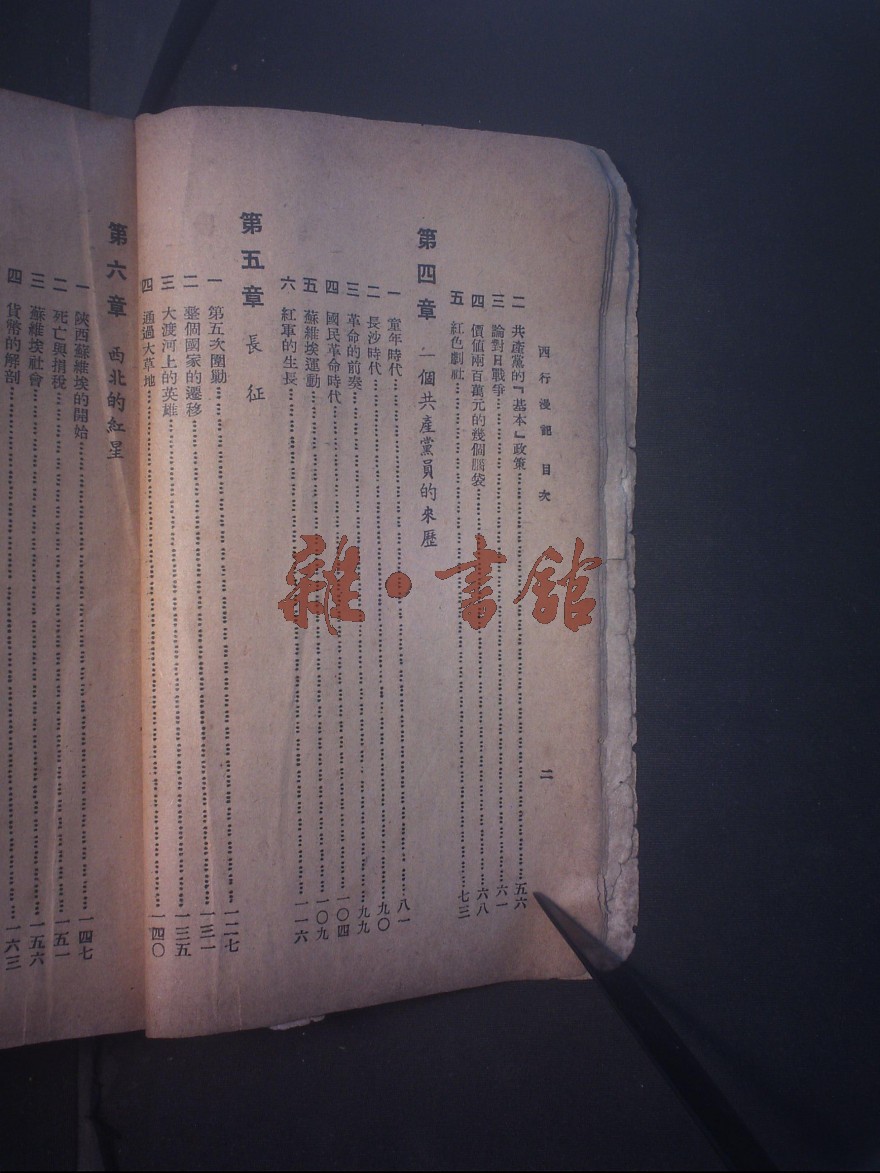 西行漫記 目次 二
二 共產黨的『基本』政策……五六
三 論對日戰爭……六一
四 價值兩百萬元的幾個腦袋……六八
五 紅色劇社……七三
第四章 一個共產黨員的來歷
一 童年時代……八一
二 長沙時代……九〇
三 革命的前奏……九九
四 國民革命時代……一〇四
五 蘇維埃運動……一〇九
六 紅軍的生長……一一六
第五章 長征
一 第五次圍勦……一二七
二 整個國家的遷移……一三一
三 大渡河上的英雄……一三五
四 通過大草地……一四〇
第六章 西北的紅星
一 陝西蘇維埃的開始……一四七
二 死亡與捐稅……一五一
三 蘇維埃社會……一五六
四 貨幣的解剖……一六三
雜·書館